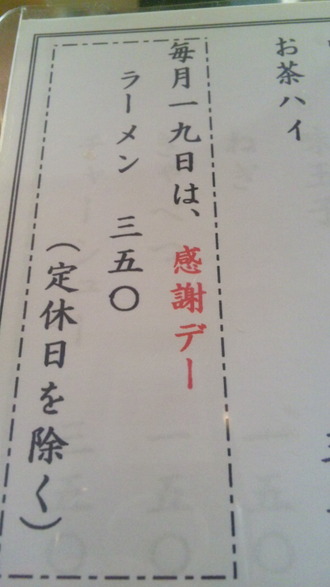 お茶ハイ
毎月一九日は、感謝デー
ラーメン 三五〇
(定休日を除く)